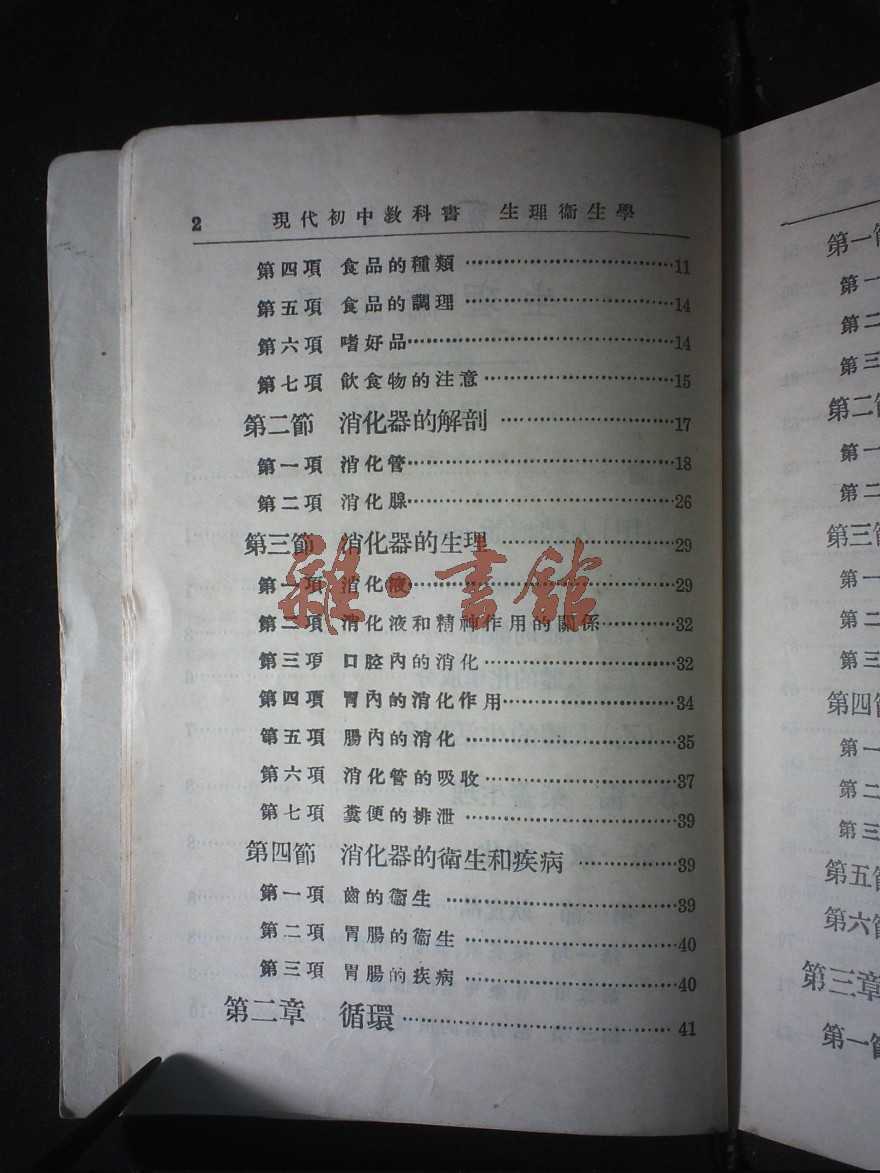 2 現代初中教科書 生理衞生學
第四項 食品的種類 ……………………………11
第五項 食品的調理 ……………………………14
第六項 嗜好品……………………………………14
第七項 飲食物的注意 …………………………15
第二節 消化器的解剖 …………………………17
第一項 消化管……………………………………18
第二項 消化腺……………………………………26
第三節 消化器的生理 …………………………29
第一項 消化液……………………………………29
第二項 消化液和精神作用的關係……………32
第三項 口腔內的消化 …………………………32
第四項 胃內的消化作用………………………34
第五項 腸內的消化 ……………………………35
第六項 消化管的吸收…………………………37
第七項 糞便的排泄 ……………………………39
第四節 消化器的衞生和疾病 …………………39
第一項 齒的衞生 ………………………………39
第二項 胃腸的衞生 ……………………………40
第三項 胃腸的疾病 ……………………………40
第二章 循環………………………………………41
雜·書館
第一節
第一
第二
第三
第二節
第一
第二
第三節
第一
第二
第三
第四節
第一
第二
第三
第五節
第六節
第三章
第一節